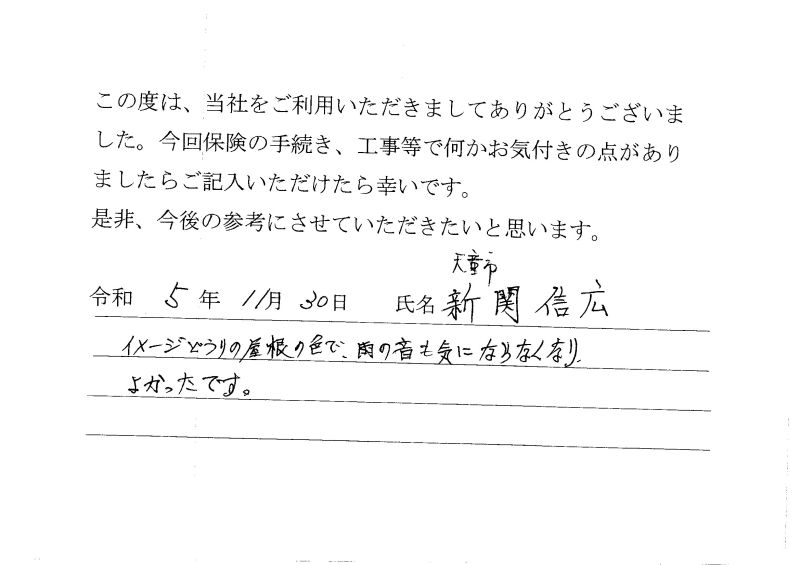 この度は、当社をご利用いただきましてありがとうございま
した。今回保険の手続き、工事等で何かお気付きの点があり
ましたらご記入いただけたら幸いです。
是非、今後の参考にさせていただきたいと思います。
天童市
令和 5 年 11月 30日 氏名 新関信広
イメージどうりの屋根の色で、雨の音も気にならなくなり、
よかったです。